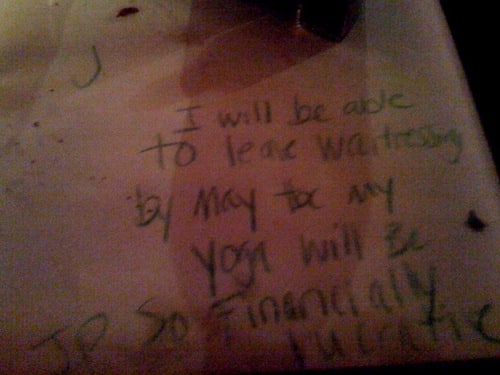 J
I will be able
to leave waitressing
by May for my
yoga will be
JP So Financially
lucrative